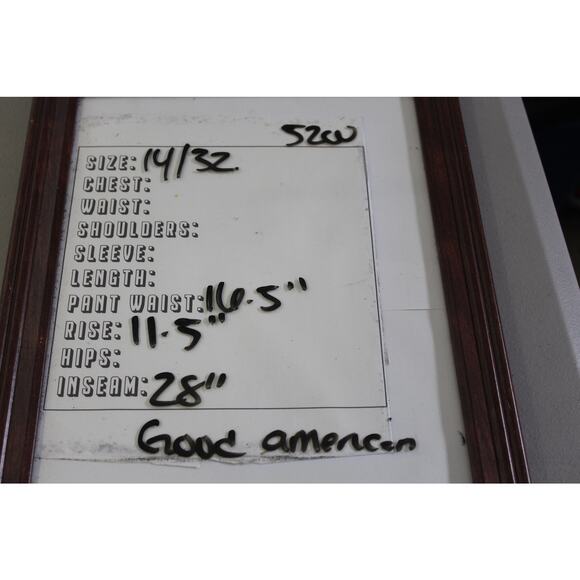 5200
SIZE: 14/32
CHEST:
WAIST:
SHOULDERS:
SLEEVE:
LENGTH:
PANT WAIST: 16.5"
RISE: 11.5"
HIPS:
INSEAM: 28"
Good american